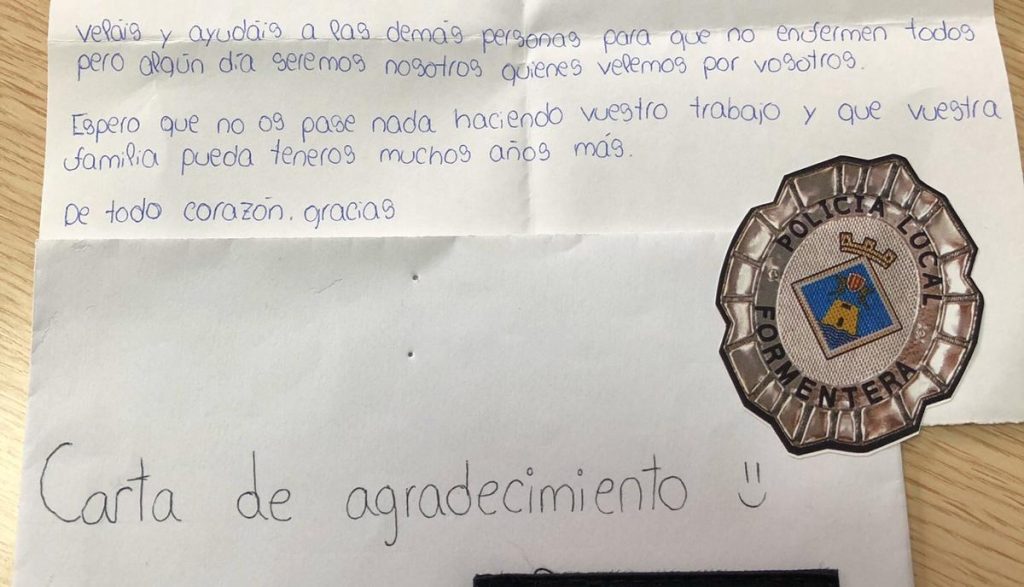 veláis y ayudáis a las demás personas para que no enfermen todos
pero algún día seremos nosotros quienes velemos por vosotros.
Espero que no os pase nada haciendo vuestro trabajo y que vuestra
familia pueda teneros muchos años más.
De todo corazón. gracias
POLICIA LOCAL
FORMENTERA
Carta de agradecimiento :)